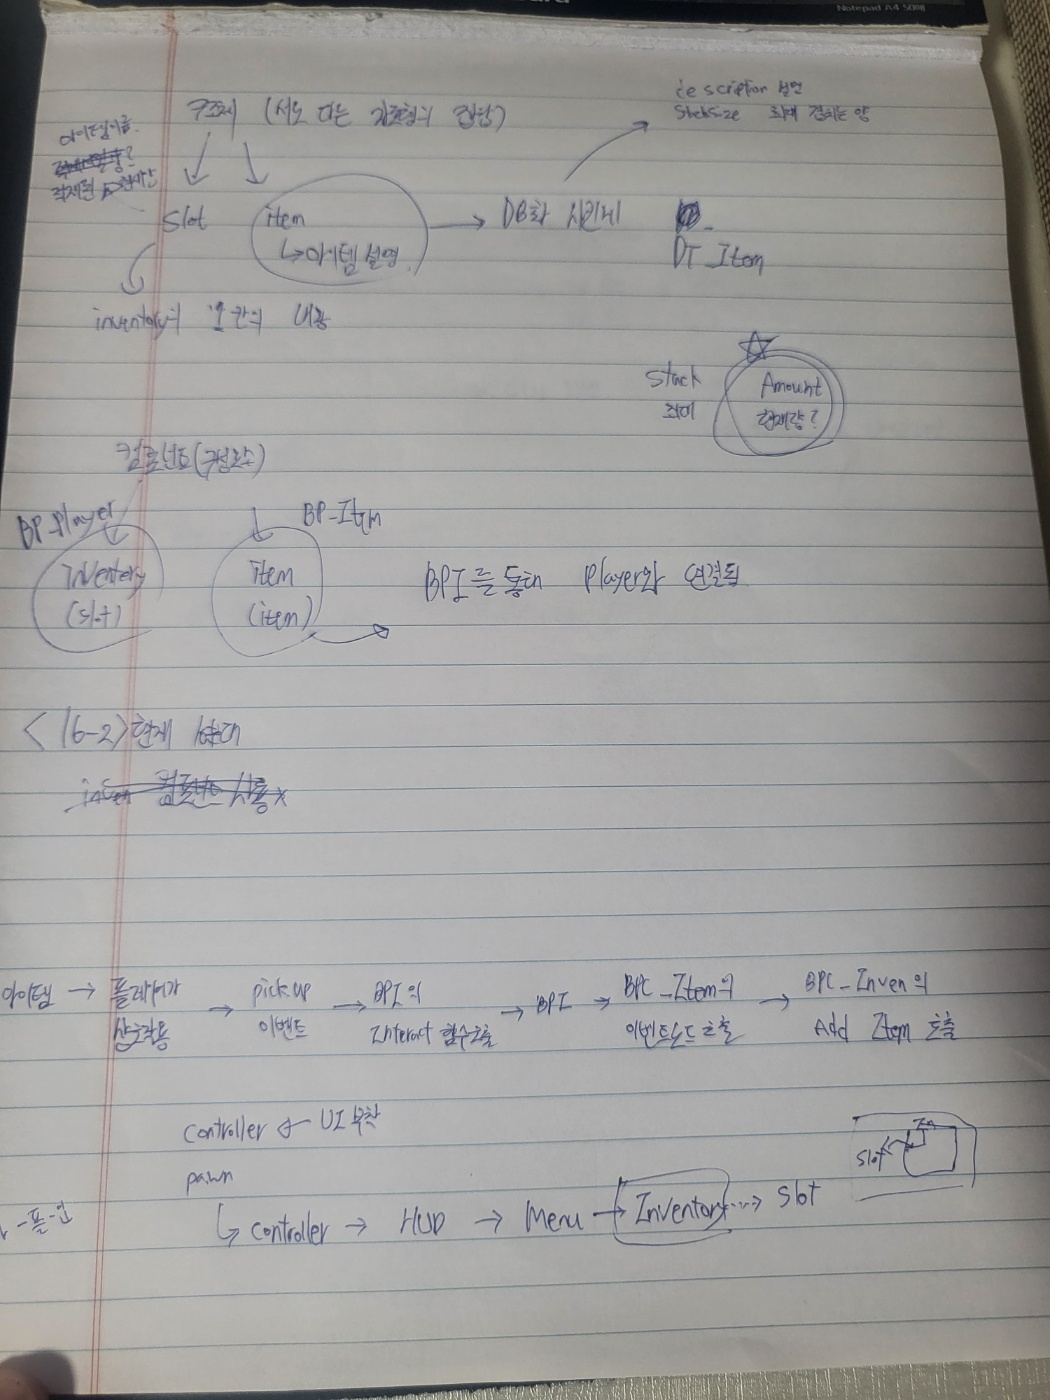 Notepad A4 500매
구조체 (서로 다른 자료형의 집합)
description 설명
StackSize 최대 겹치는 양
아이템이름
slot
item
↳ 아이템 설명
→ DB화 시킨게
DT_Item
inventory의 1칸의 내용
Stack
최대
☆
Amount
현재량?
컴포넌트(구성요소)
BP_Player
BP_Item
Inventory
(slot)
item
(item)
BPI를 통해 Player와 연결됨
<16-2> 현재 상태
아이템 → 플레이어가 상호작용 → pick up 이벤트 → BPI의 Interact 함수호출 → BPI → BPC_Item의 이벤트노드 호출 → BPC_Inven의 Add Item 호출
controller ← UI 부착
pawn
↳ controller → HUD → Menu → Inventory ⇢ slot
slot